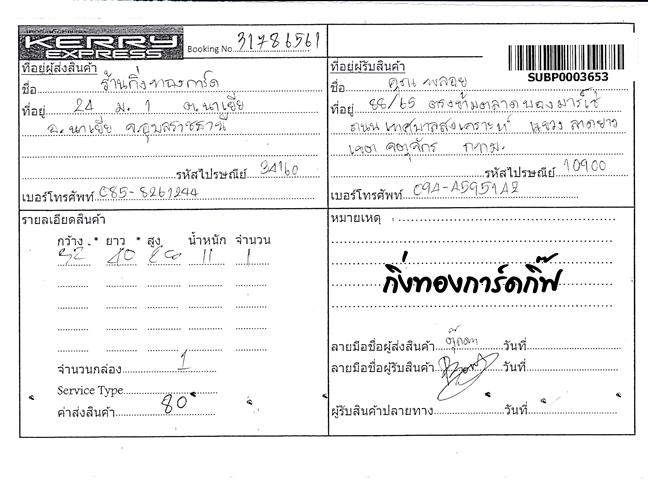 KERRY
EXPRESS
Booking No. 31786561
ที่อยู่ผู้ส่งสินค้า
ชื่อ ร้านกิ่งทองการ์ด
ที่อยู่ 24 ม. 1 ต. นาเยีย
อ. นาเยีย จ. อุบลราชธานี
รหัสไปรษณีย์ 34160
เบอร์โทรศัพท์ 085-8261244
ที่อยู่ผู้รับสินค้า
SUBP0003653
ชื่อ คุณ พลอย
ที่อยู่ 88/65 ตรงข้ามตลาดบองมาร์เช่
ถนน เทศบาลสงเคราะห์ แขวง ลาดยาว
เขต จตุจักร กทม.
รหัสไปรษณีย์ 10900
เบอร์โทรศัพท์
รายละเอียดสินค้า
กว้าง * ยาว * สูง น้ำหนัก จำนวน
32 40 11 1
จำนวนกล่อง 1
Service Type
ค่าส่งสินค้า 80
หมายเหตุ :
กิ่งทองการ์ดกิ๊ฟ
ลายมือชื่อผู้ส่งสินค้า ตุ๊กตา วันที่
ลายมือชื่อผู้รับสินค้า วันที่
ผู้รับสินค้าปลายทาง วันที่